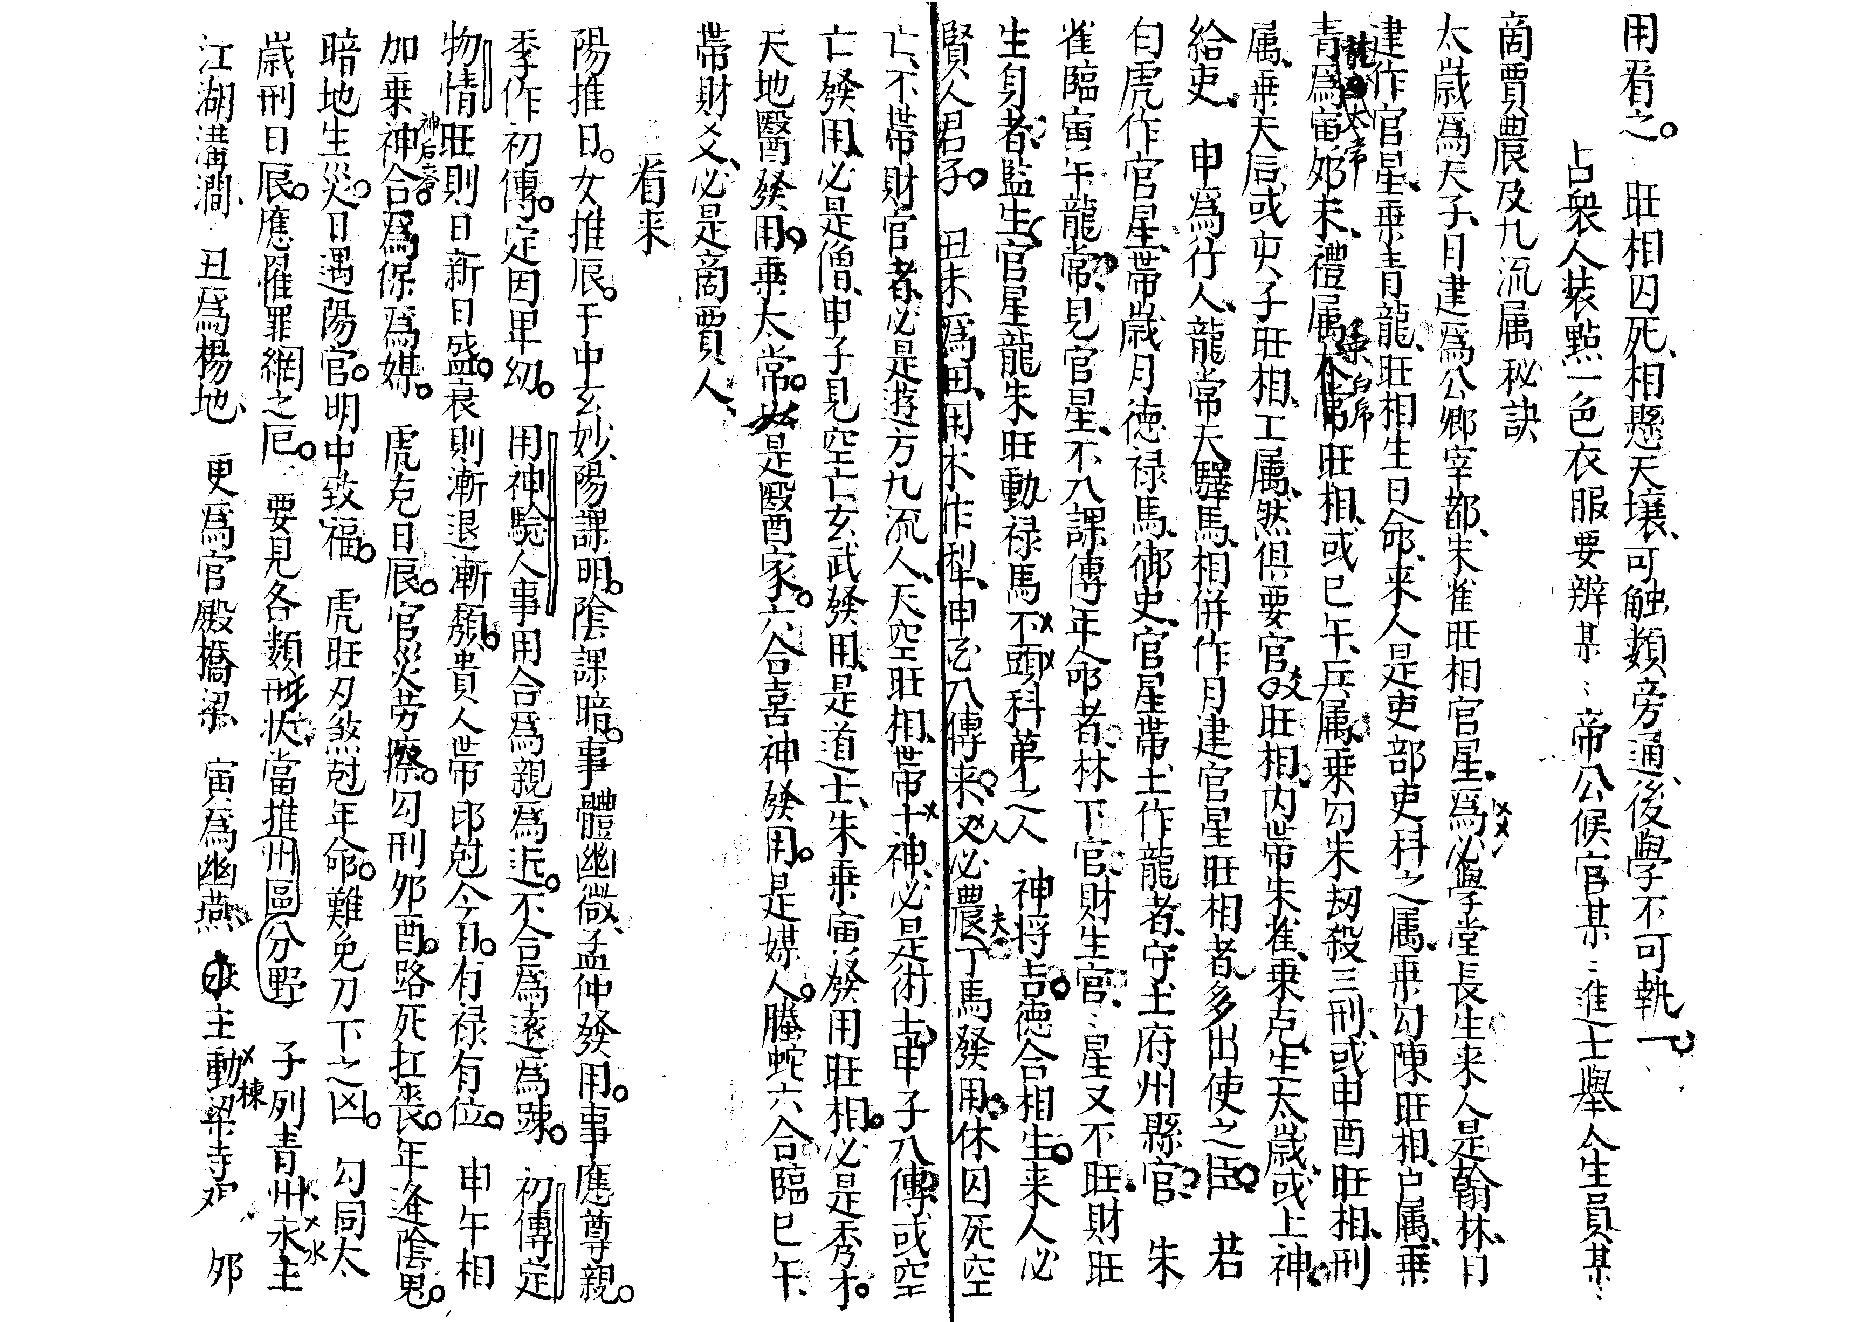 用看之。旺相囚死、相懸天壤、可触類旁通、後學不可執一。
占衆人裝點一色衣服要辨某：帝公候官某：進士舉人生員某：
商賈農及九流属秘訣
太歲爲天子、月建爲公卿宰都、朱雀旺相官星、爲必學堂長生来人是翰林、日
建作官星、乗青龍、旺相生日命、来人是吏部吏科之属、乗勾陳旺相、户属、乗
青爲寅卯未、禮属旺相、或巳午、兵属、乗勾朱刼殺三刑、或申酉旺相、刑
属、乗天后、或亥子旺相、工属、然俱要官旺相、内帯朱雀、乗克、生太歲、或上神、
給吏、申爲行人、龍常天驛馬、相併作月建官星旺相者、多出使之臣。若 朱
勾虎作官星、帯歲月德禄馬、御史、官星帯土作龍者、守土府州縣官、
雀臨寅午龍常、見官星、不入課傳年命者、林下官、財生官、：星又不旺、財旺
生身者、監生、官星龍朱旺動禄馬不頭科苐之人 神将吉德合相生。来人必
賢人君子。丑未爲田、用木作犁、申入傳来。必農夫丁馬發用。休囚死空
亡、不帯財官者、必是遊方九流人、天空旺相、帯十神、必是術士、申子入傳、或空
亡發用、必是僧、申子見空亡玄武發用、是道士、朱乗寅發用旺相。必是秀才。
天地醫發用。乗太常。必是醫家。六合喜神發用。是媒人。螣蛇六合臨巳午、
帯財爻、必是商賈人、
看来
陽推日。女推辰。于中玄妙、陽課明。陰課暗。事體幽微、孟仲發用。事應尊親。
季作初傳。定因卑幼。用神驗人事用合爲親爲近。不合爲遠爲踈。初傳定
物情旺則日新日盛。衰則漸退漸頽。貴人帯印尅今日。有禄有位。申午相
加乗神合。神后 爲保爲媒。虎克日辰。官災劳瘵。勾刑卯酉。路死扛丧。年逢陰鬼。
暗地生災。日遇陽官。明中致福。虎旺刃煞尅年命。難免刀下之凶。勾同太
歲刑日辰。應罹罪網之厄。要見各類形状、當推州區分野 子列青州水主
江湖溝澗、丑爲楊地、更爲官殿橋梁 寅爲幽燕、主動棟梁寺 卯